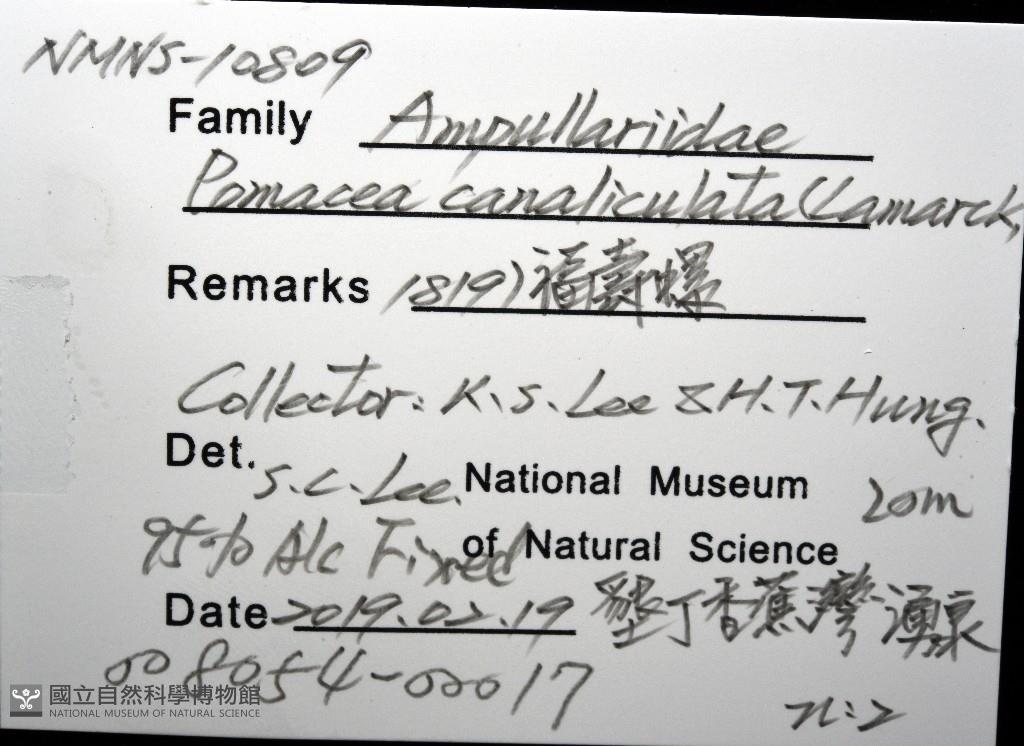 NMNS-10809
Family Ampullariidae
Pomacea canaliculata (Lamarck,
Remarks 1819) 福壽螺
Collector: K.S. Lee & H.T. Hung.
Det. S.C. Lee. National Museum 20m
95% Alc Fixed of Natural Science
Date 2019.02.19 墾丁香蕉灣湧泉
008054-00017
n:2
國立自然科學博物館
NATIONAL MUSEUM OF NATURAL SCIENCE